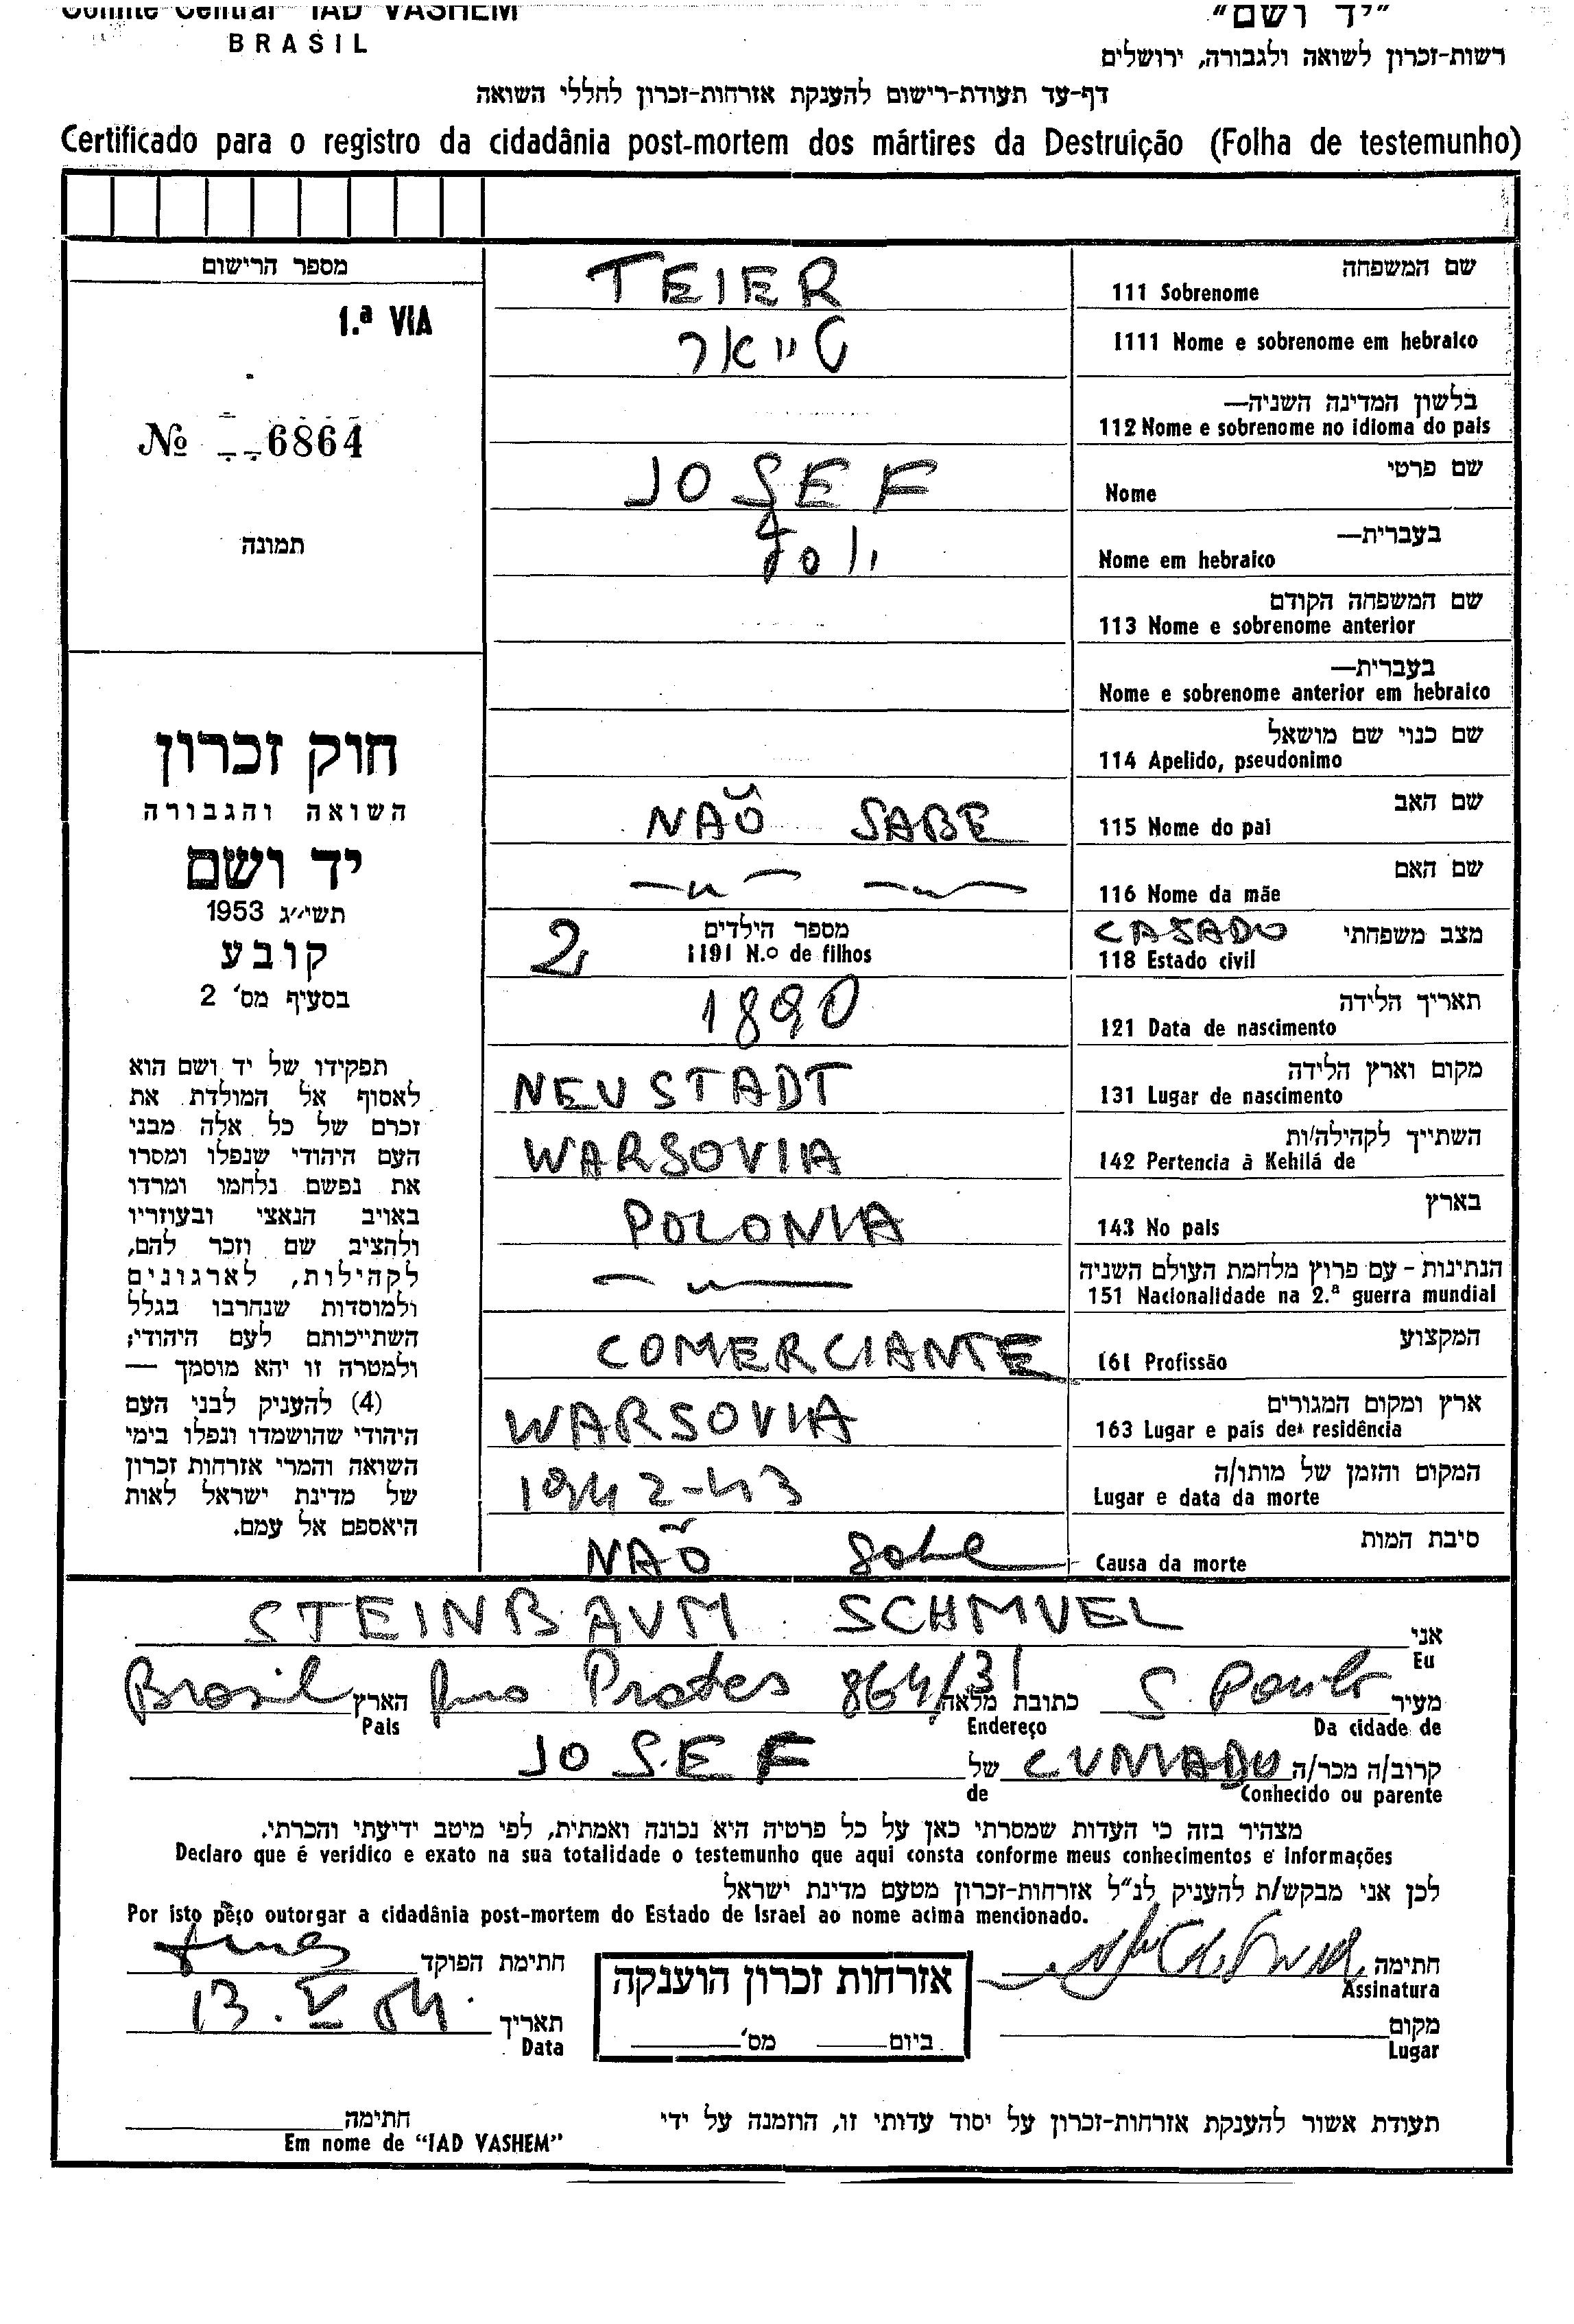 Comité Central IAD VASHEM
BRASIL
"יד ושם"
רשות-זכרון לשואה ולגבורה, ירושלים
דף-עד תעודת-רישום להענקת אזרחות-זכרון לחללי השואה
Certificado para o registro da cidadânia post-mortem dos mártires da Destruição (Folha de testemunho)
מספר הרישום
1.ª VIA
Nº 6864
תמונה
חוק זכרון
השואה והגבורה
יד ושם
תשי״ג 1953
קובע
בסעיף מס' 2
תפקידו של יד ושם הוא
לאסוף אל המולדת את
זכרם של כל אלה מבני
העם היהודי שנפלו ומסרו
את נפשם נלחמו ומרדו
באויב הנאצי ובעוזריו
ולהציב שם וזכר להם,
לקהילות, לארגונים
ולמוסדות שנחרבו בגלל
השתייכותם לעם היהודי;
ולמטרה זו יהא מוסמך —
(4) להעניק לבני העם
היהודי שהושמדו ונפלו בימי
השואה והמרי אזרחות זכרון
של מדינת ישראל לאות
היאספם אל עמם.
שם המשפחה
111 Sobrenome TEIER
1111 Nome e sobrenome em hebraico טייאר
בלשון המדינה השניה—
112 Nome e sobrenome no idioma do pais
שם פרטי
Nome JOSEF
בעברית—
Nome em hebraico יוסף
שם המשפחה הקודם
113 Nome e sobrenome anterior
בעברית—
Nome e sobrenome anterior em hebraico
שם כנוי שם מושאל
114 Apelido, pseudonimo
שם האב
115 Nome do pai NAÕ SABE
שם האם
116 Nome da mãe —〃— —〃—
מצב משפחתי
118 Estado civil CASADO
מספר הילדים
1191 N.º de filhos 2
תאריך הלידה
121 Data de nascimento 1890
מקום וארץ הלידה
131 Lugar de nascimento NEUSTADT
השתייך לקהילה/ות
142 Pertencia à Kehilá de WARSOVIA
בארץ
143 No pais POLONIA
הנתינות - עם פרוץ מלחמת העולם השניה
151 Nacionalidade na 2.ª guerra mundial —〃—
המקצוע
161 Profissão COMERCIANTE
ארץ ומקום המגורים
163 Lugar e pais de residência WARSOVIA
המקום והזמן של מותו/ה
Lugar e data da morte 1942-43
סיבת המות
Causa da morte NAÕ sabe
אני STEINBAUM SCHMUEL
Eu
מעיר S. Paulo כתובת מלאה Rua Prates 864/31 הארץ Brasil
Da cidade de Endereço Pais
קרוב/ה מכר/ה CUNIADO של JOSEF
Conhecido ou parente de
מצהיר בזה כי העדות שמסרתי כאן על כל פרטיה היא נכונה ואמתית, לפי מיטב ידיעתי והכרתי.
Declaro que é veridico e exato na sua totalidade o testemunho que aqui consta conforme meus conhecimentos e informações
לכן אני מבקש/ת להעניק לנ"ל אזרחות-זכרון מטעם מדינת ישראל
Por isto peço outorgar a cidadânia post-mortem do Estado de Israel ao nome acima mencionado.
חתימה
Assinatura
מקום
Lugar
אזרחות זכרון הוענקה
ביום מס'
חתימת הפוקד
תאריך 13.V
Data
תעודת אשור להענקת אזרחות-זכרון על יסוד עדותי זו, הוזמנה על ידי
חתימה
Em nome de "IAD VASHEM"